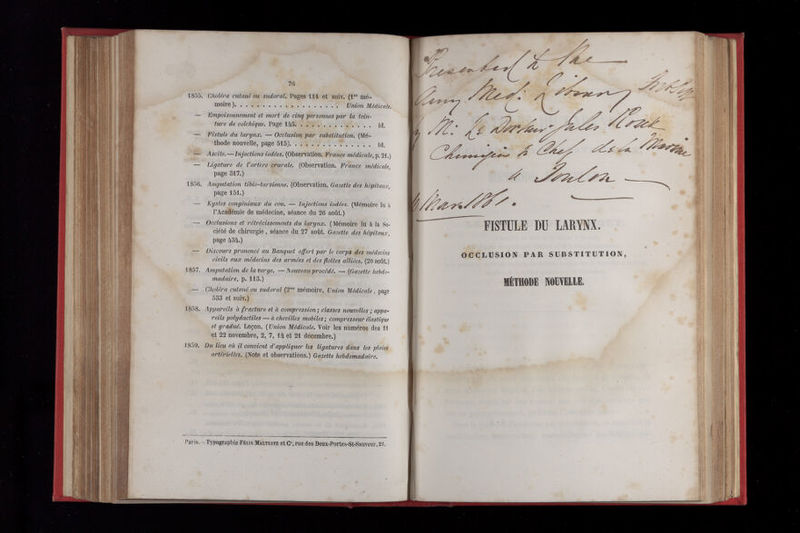 76
1855. Choléra cutané ou sudoral. Pages 114 et suiv. (1er mé-
moire). . . . . . . . . . . . . . . . . . . Union Médicale.
— Empoisonnement et mort de cinq personnes par la tein-
ture de colchique. Page 145. . . . . . . . . . . . . . id.
— Fistule du larynx. — Occlusion par substitution. (Mé-
thode nouvelle, page 515). . . . . . . . . . . . . . . id.
— Ascite. — Injections iodées. (Observation. France médicale, p. 21.)
— Ligature de l'artère crurale. (Observation. France médicale,
page 317.)
1856. Amputation tibio-tarsienne. (Observation. Gazette des hôpitaux,
page 151.)
— Kystes congéniaux du cou. — Injections iodées. (Mémoire lu à
l'Académie de médecine, séance du 26 août.)
— Occlusions et rétrécissements du larynx. (Mémoire lu à la So-
ciété de chirurgie, séance du 27 août. Gazette des hôpitaux,
page 434.)
— Discours prononcé au Banquet offert par le corps des médecins
civils aux médecins des armées et des flottes alliées. (20 août.)
1857. Amputation de la verge. — Nouveau procédé. — (Gazette hebdo-
madaire, p. 113.)
— Choléra cutané ou sudoral (2me mémoire, Union Médicale, page
533 et suiv.)
1858. Appareils à fracture et à compression; classes nouvelles; appa-
reils polydactiles — à chevilles mobiles; compresseur élastique
et gradué. Leçon. (Union Médicale. Voir les numéros des 11
et 22 novembre, 2, 7, 14 et 21 décembre.)
1859. Du lieu où il convient d'appliquer les ligatures dans les plaies
artérielles. (Note et observations.) Gazette hebdomadaire.
Paris. — Typographie FÉLIX MALTESTE et Ce, rue des Deux-Portes-St-Sauveur, 22.
Presented to the
Army Med: Library
by M: Le Docteur Jules Roux
Chirurgien en Chef de la Marine
à Toulon —
FISTULE DU LARYNX.
OCCLUSION PAR SUBSTITUTION,
MÉTHODE NOUVELLE.